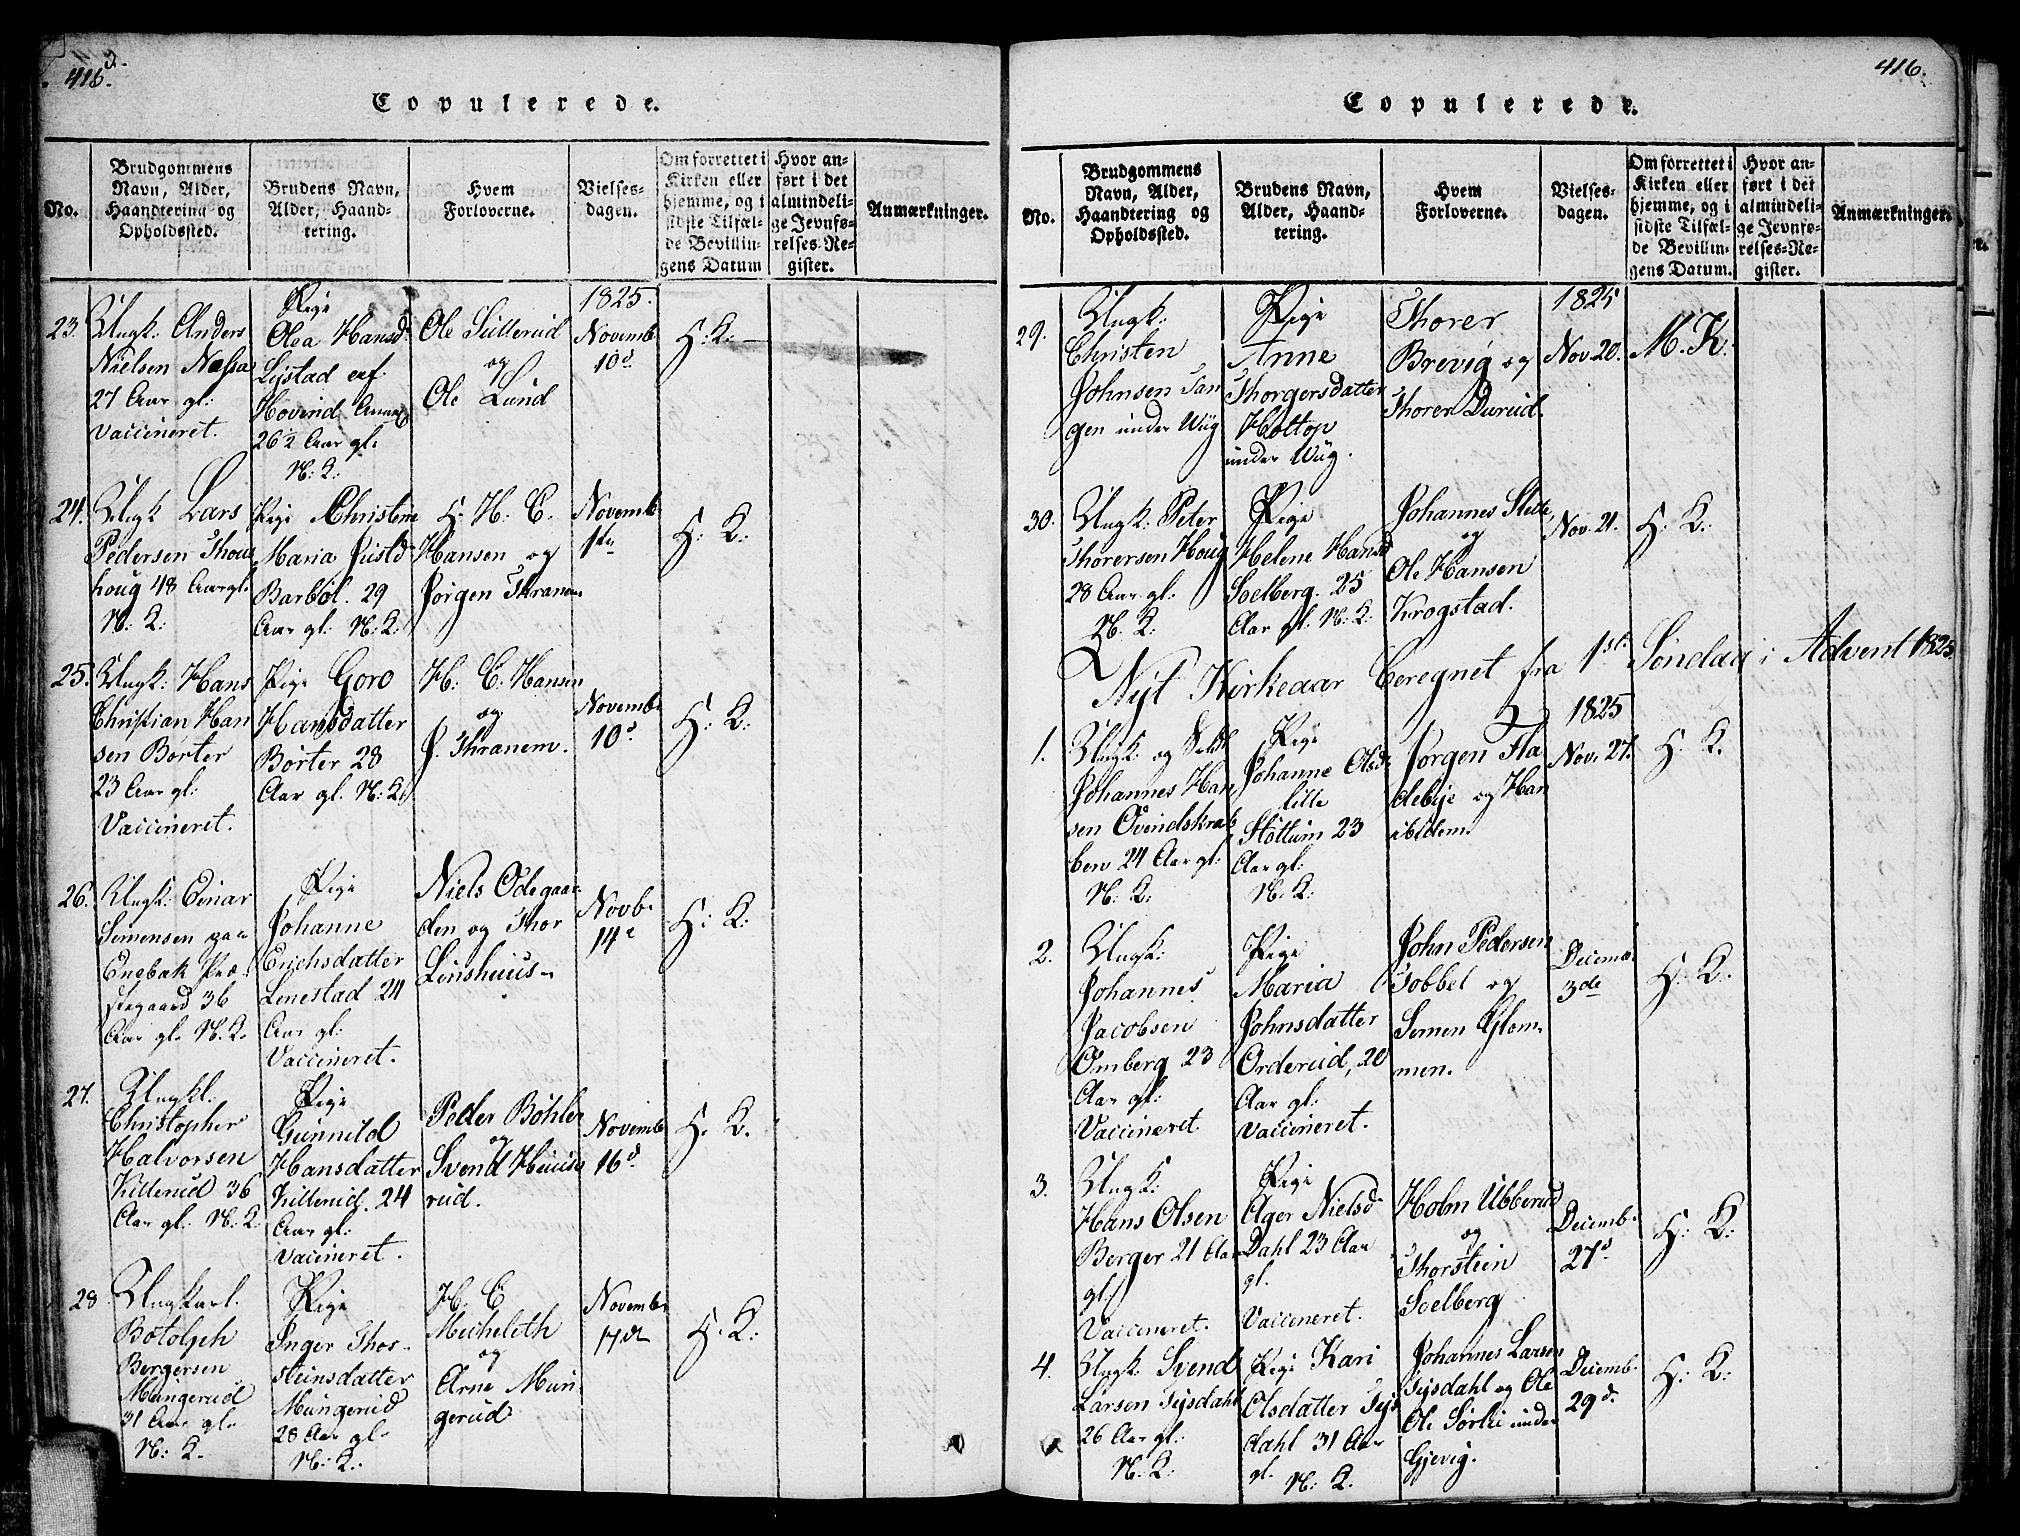 415.
Copulerede.
No.
Brudgommens
Navn, Alder,
Haandtering og
Opholdssted.
Brudens Navn,
Alder, Haand-
tering.
Hvem
Forloverne.
Vielses-
dagen.
Om forrettet i
Kirken eller
hjemme, og i
sidste Tilfæl-
de Bevillin-
gens Datum
Hvor an-
ført i det
almindeli-
ge Jevnfø-
relses-Re-
gister.
Anmærkninger.
23.
Ungk: Anders
Nielsen
27 Aar gl:
Vaccineret.
Pige
Olea Hansd:
Lystad
Hovind
26½ Aar gl.
N: K:
Ole Sütterud
og
Ole Lünd
1825.
Novemb
10d
H: K:
24.
Ungk Lars
Pedersen
houg 48 Aar gl.
N: K:
Pige Christine
Maria
Barbøl. 29
Aar gl: N: K:
H. H. C.
Hansen og
Jørgen Thranem
Novemb
H: K:
25.
Ungk: Hans
Christian Han
sen Børter
23 Aar gl:
Vaccineret.
Pige Goro
Hansdatter
Børter 28
Aar gl. N: K:
H. C. Hansen
og
J. Thranem.
Novemb:
10d
H: K:
26.
Ungk: Einar
Simensen paa
Enebak Præ-
stegaard 36
Aar gl. N. K.
Pige
Johanne
Erichsdatter
Lenestad 24
Aar gl:
Vaccineret.
Niels Ødegaar
den og Thor
Lønshuus
Novb.
14e
H: K:
27.
Ungkl.
Christopher
Halvorsen
Killerud 36
Aar gl: N: K
Pige
Gunnild
Hansdatter
Killerud. 24
Aar gl:
Vaccineret.
Peder Bøhler
og
Svend Huuse
rud.
Novemb
16d
H. K.
28
Ungkarl.
Botolph
Bergersen
Mungerud
31 Aar gl.
N: K.
Pige
Inger Thor-
steinsdatter
Mungerud
28 Aar gl.
N: K:
H. C
Micheleth
og
Arne Mun
gerud
Novemb:
17de
H. K:
416.
Copulerede.
No.
Brudgommens
Navn, Alder,
Haandtering og
Opholdssted.
Brudens Navn,
Alder, Haand-
tering.
Hvem
Forloverne.
Vielses-
dagen.
Om forrettet i
Kirken eller
hjemme, og i
sidste Tilfæl-
de Bevillin-
gens Datum.
Hvor an-
ført i det
almindeli-
ge Jevnfø-
relses-Re-
gister.
Anmærkninger.
29.
Ungk:
Christen
Johnsen Tan
gen under Wüg
Pige
Anne
Thorgersdatter
Holtop
under Wüg.
Thorer
Brevig og
Thorer Durud.
1825
Nov 20.
M. K:
30.
Ungk: Peter
Thorersen Houg
28 Aar gl.
N. K:
Pige
Helene Hansd
Solberg. 25
Aar gl. N: K:
Johannes
og
Ole Hansen
Krogstad.
Nov. 21.
H. K:
Nyt Kirkeaar beregnet fra 1ste Søndag i Advent 1825.
1.
Ungk: og
Johannes Han
sen Øvindskrab
ben 24 Aar gl:
N: K:
Pige
Johanne Olsd:
lille
Støttum 23
Aar gl:
N. K:
Jørgen Fla
debye og Han
1825
Nov. 27.
H. K.
2.
Ungk:
Johannes
Jacobsen
Omberg 23
Aar gl:
Vaccineret
Pige
Maria
Johnsdatter
Orderud, 20
Aar gl:
Vaccineret.
John Pedersen
Tobbel og
Simen Glom-
men.
Decemb.
3de
H. K.
3.
Ungk:
Hans Olsen
Berger 21 Aar
gl:
Vaccineret.
Pige
Ager Nielsd
Dahl 23 Aar
gl.
Vaccineret.
Holm Ubberud
og
Thorstein
Soelberg
Decemb.
27d
H: K:
4.
Ungk: Svend
Larsen Tysdahl
26 Aar gl:
N: K:
Pige Kari
Olsdatter Tys
dahl 31 Aar
gl. N: K.
Johannes Larsen
Tysdahl og Ole
Ole Sørlie under
Gjevig.
Decemb.
29d.
H: K: